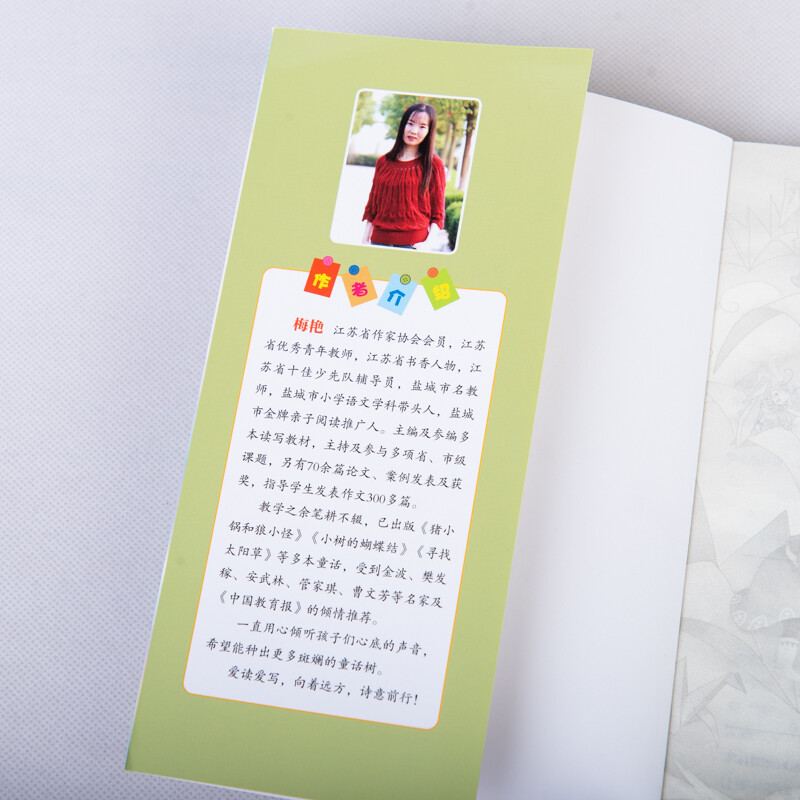 作者介绍
梅艳 江苏省作家协会会员,江苏
省优秀青年教师,江苏省书香人物,江
苏省十佳少先队辅导员,盐城市名教
师,盐城市小学语文学科带头人,盐城
市金牌亲子阅读推广人。主编及参编多
本读写教材,主持及参与多项省、市级
课题,另有70余篇论文、案例发表及获
奖,指导学生发表作文300多篇。
教学之余笔耕不辍,已出版《猪小
锅和狼小怪》《小树的蝴蝶结》《寻找
太阳草》等多本童话,受到金波、樊发
稼、安武林、管家琪、曹文芳等名家及
《中国教育报》的倾情推荐。
一直用心倾听孩子们心底的声音,
希望能种出更多斑斓的童话树。
爱读爱写,向着远方,诗意前行!